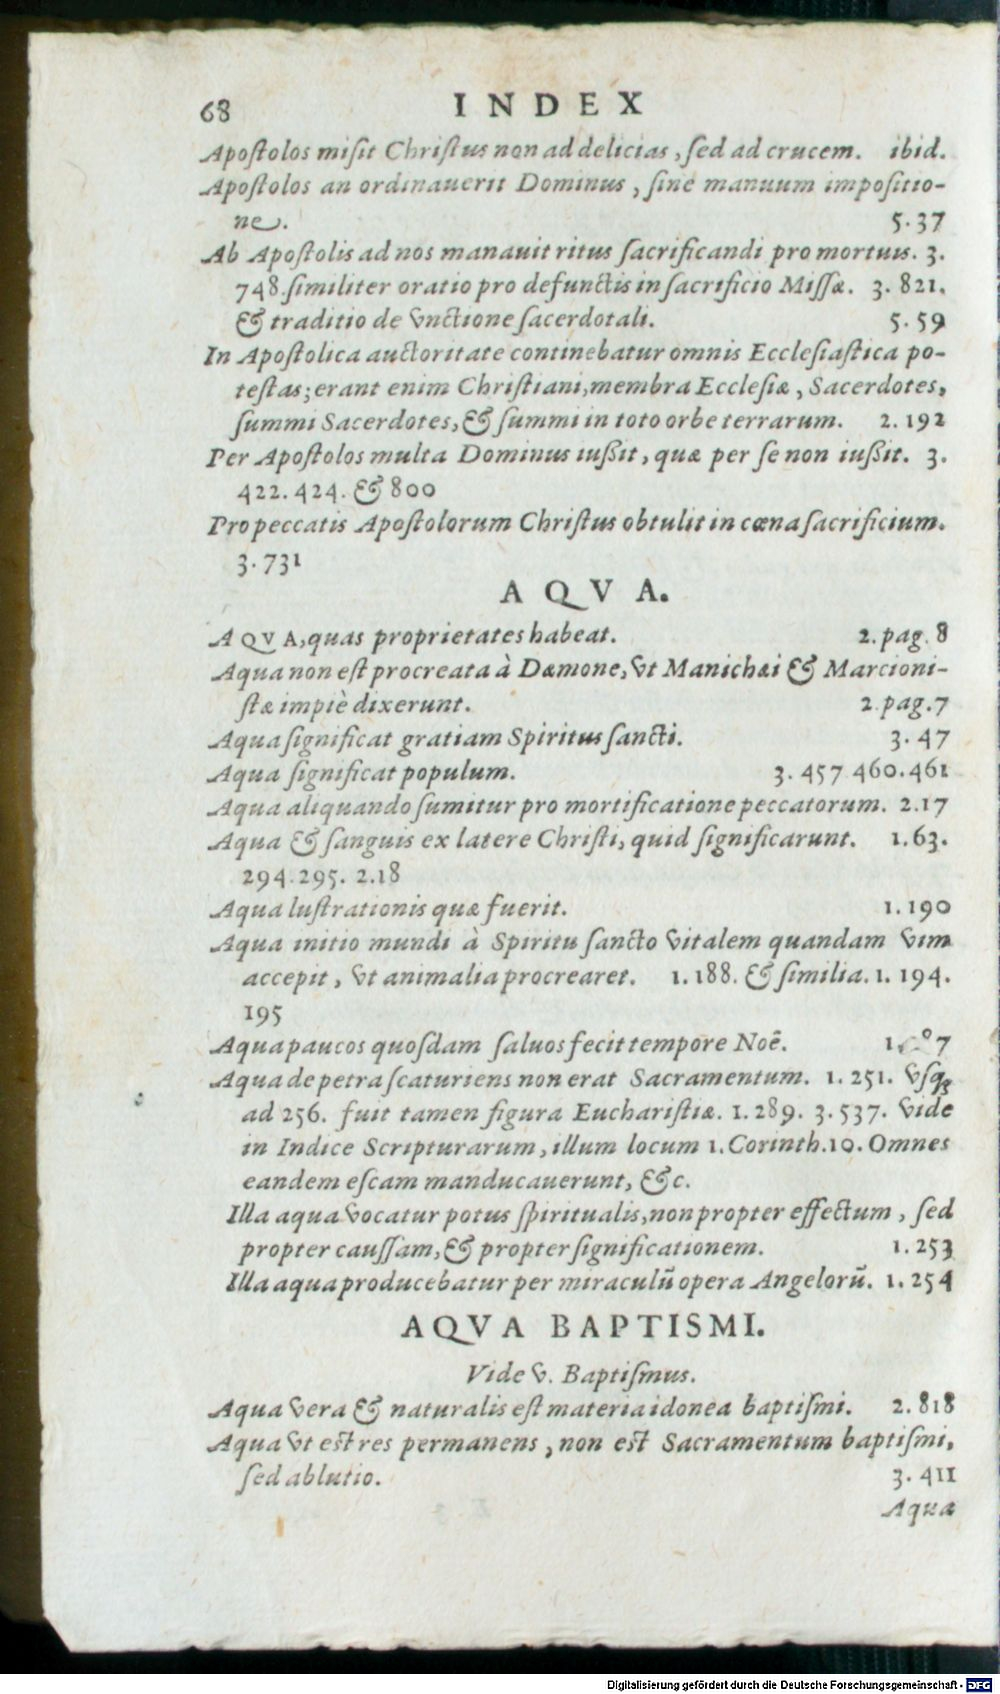 68 INDEX
Apoſtolos miſit Chriſtus non ad delicias, ſed ad crucem. ibid.
Apoſtolos an ordinauerit Dominus, ſine manuum impoſitio-
ne. 5. 37
Ab Apoſtolis ad nos manauit ritus ſacrificandi pro mortuis. 3.
748. ſimiliter oratio pro defunctis in ſacrificio Miſſæ. 3. 821.
& traditio de vnctione ſacerdotali. 5. 59
In Apoſtolica auctoritate continebatur omnis Eccleſiaſtica po-
teſtas; erant enim Chriſtiani, membra Eccleſiæ, Sacerdotes,
ſummi Sacerdotes, & ſummi in toto orbe terrarum. 2. 192
Per Apoſtolos multa Dominus iuſsit, quæ per ſe non iuſsit. 3.
422. 424. & 800
Pro peccatis Apoſtolorum Chriſtus obtulit in cœna ſacrificium.
3. 731
AQVA.
AQVA, quas proprietates habeat. 2. pag. 8
Aqua non eſt procreata à Dæmone, vt Manichæi & Marcioni-
ſtæ impiè dixerunt. 2. pag. 7
Aqua ſignificat gratiam Spiritus ſancti. 3. 47
Aqua ſignificat populum. 3. 457 460. 461
Aqua aliquando ſumitur pro mortificatione peccatorum. 2. 17
Aqua & ſanguis ex latere Chriſti, quid ſignificarunt. 1. 63.
294. 295. 2. 18
Aqua luſtrationis quæ fuerit. 1. 190
Aqua initio mundi à Spiritu ſancto vitalem quandam vim
accepit, vt animalia procrearet. 1. 188. & ſimilia. 1. 194.
195
Aqua paucos quoſdam ſaluos fecit tempore Noë.
Aqua de petra ſcaturiens non erat Sacramentum. 1. 251. vſqꝫ
ad 256. fuit tamen figura Euchariſtiæ. 1. 289. 3. 537. vide
in Indice Scripturarum, illum locum 1. Corinth. 10. Omnes
eandem eſcam manducauerunt, &c.
Illa aqua vocatur potus ſpiritualis, non propter effectum, ſed
propter cauſſam, & propter ſignificationem. 1. 253
Illa aqua producebatur per miraculū opera Angelorū. 1. 254
AQVA BAPTISMI.
Vide v. Baptiſmus.
Aqua vera & naturalis eſt materia idonea baptiſmi. 2. 818
Aqua vt eſt res permanens, non eſt Sacramentum baptiſmi,
ſed ablutio. 3. 411
Aqua
Digitalisierung gefördert durch die Deutsche Forschungsgemeinschaft - DFG